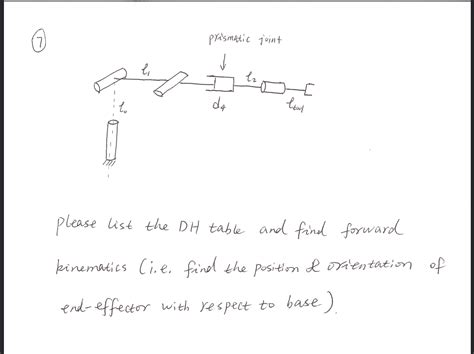 7
prismatic joint
l1
l2
l0
d4
ltool
please list the DH table and find forward
kinematics (i.e. find the position & orientation of
end-effector with respect to base).